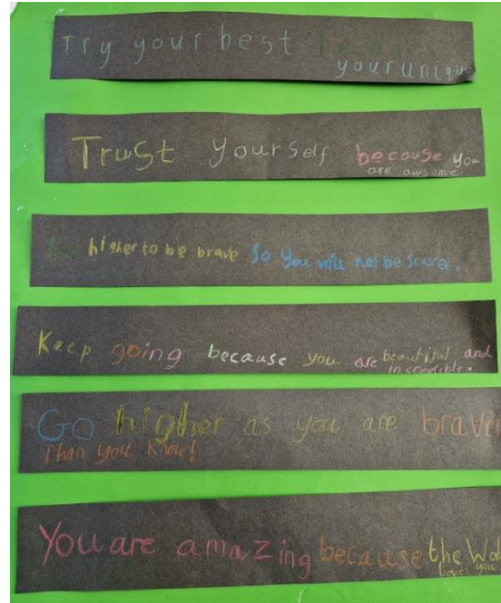 Try your best because
your unique
Trust yourself because you
are awsome.
Go higher to be brave So you will not be scared.
Keep going because you are beautiful and
incredible.
Go higher as you are braver
Than you know!
You are amazing because the
loves you